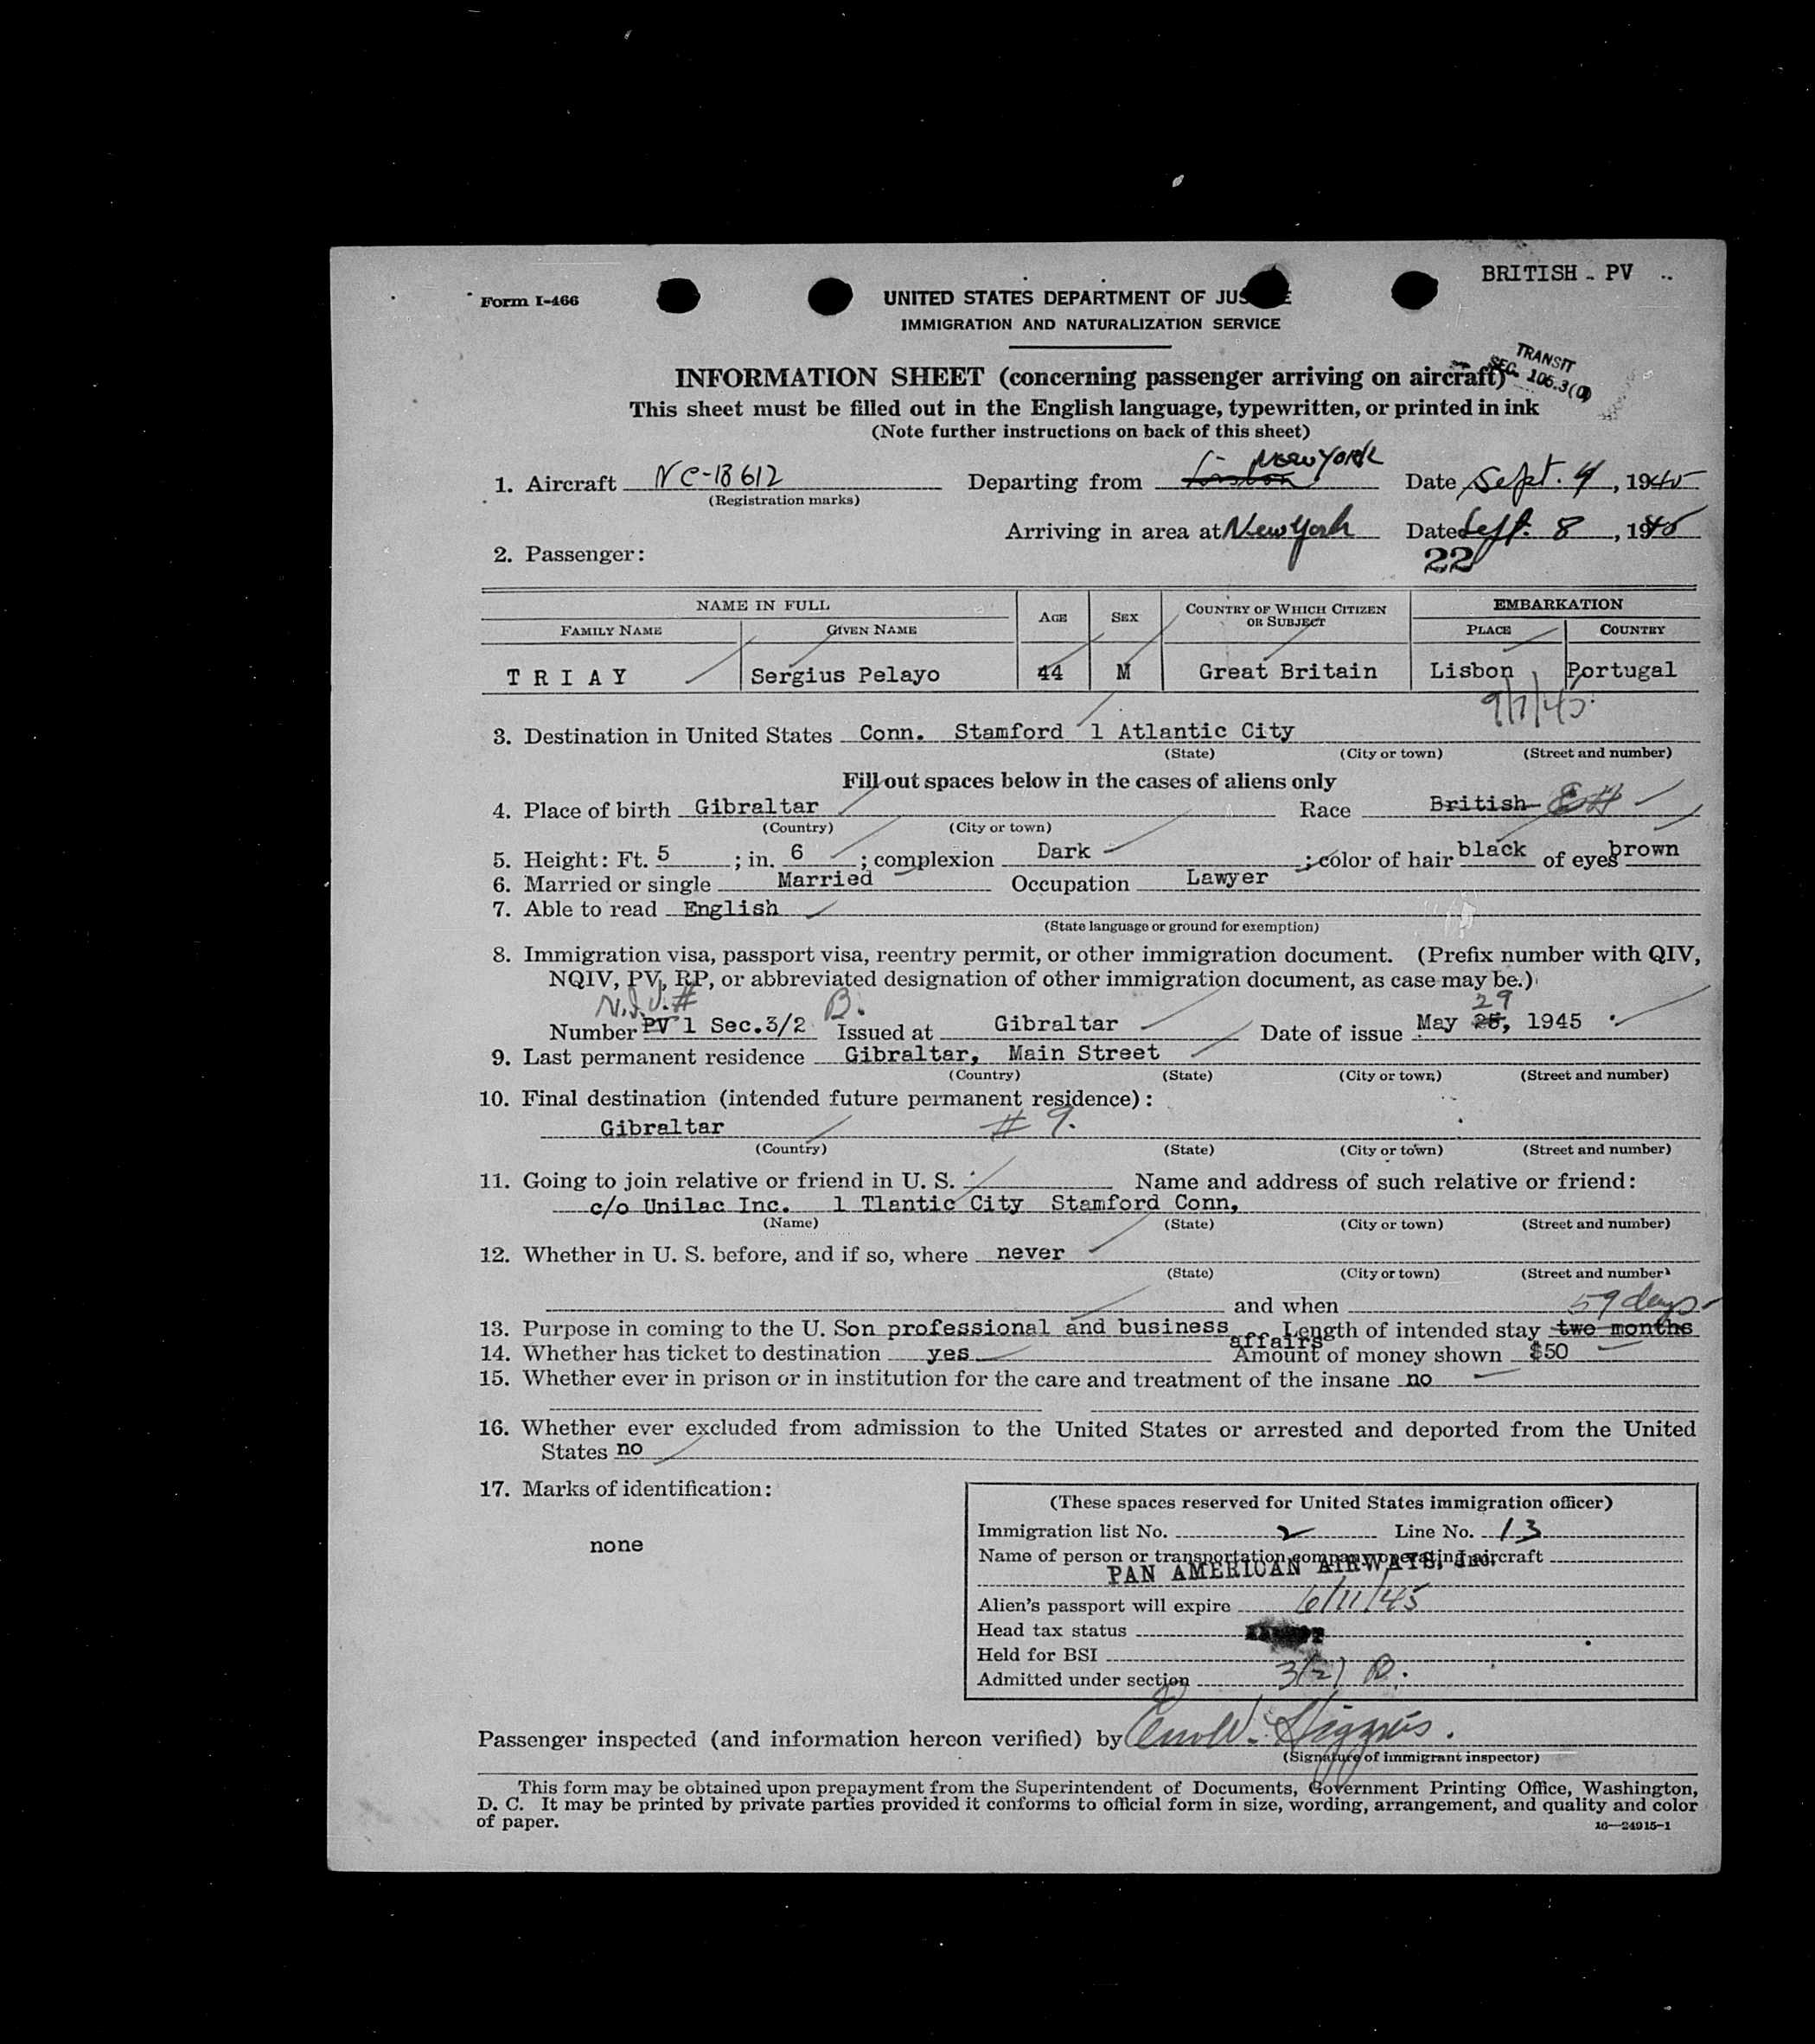 BRITISH - PV
Form I-466
UNITED STATES DEPARTMENT OF JUSTICE
IMMIGRATION AND NATURALIZATION SERVICE
TRANSIT
SEC. 105.3(
INFORMATION SHEET (concerning passenger arriving on aircraft)
This sheet must be filled out in the English language, typewritten, or printed in ink
(Note further instructions on back of this sheet)
1. Aircraft NC-18612 Departing from Lisbon New York Date Sept. 1945
(Registration marks)
Arriving in area at New York Date Sept. 8, 1945
2. Passenger: 22
NAME IN FULL AGE SEX COUNTRY OF WHICH CITIZEN OR SUBJECT EMBARKATION
FAMILY NAME GIVEN NAME PLACE COUNTRY
TRIAY Sergius Pelayo 44 M Great Britain Lisbon Portugal
9/7/45
3. Destination in United States Conn. Stamford 1 Atlantic City
(State) (City or town) (Street and number)
Fill out spaces below in the cases of aliens only
4. Place of birth Gibraltar Race British
(Country) (City or town)
5. Height: Ft. 5; in. 6; complexion Dark; color of hair black of eyes brown
6. Married or single Married Occupation Lawyer
7. Able to read English
(State language or ground for exemption)
8. Immigration visa, passport visa, reentry permit, or other immigration document. (Prefix number with QIV,
NQIV, PV, RP, or abbreviated designation of other immigration document, as case may be.)
Number PV 1 Sec.3/2 B. Issued at Gibraltar Date of issue May 25, 29 1945
9. Last permanent residence Gibraltar, Main Street
(Country) (State) (City or town) (Street and number)
10. Final destination (intended future permanent residence):
Gibraltar # 9.
(Country) (State) (City or town) (Street and number)
11. Going to join relative or friend in U. S. Name and address of such relative or friend:
c/o Unilac Inc. 1 Tlantic City Stamford Conn,
(Name) (State) (City or town) (Street and number)
12. Whether in U. S. before, and if so, where never
(State) (City or town) (Street and number)
and when 59 days
13. Purpose in coming to the U. S on professional and business affairs Length of intended stay two months
14. Whether has ticket to destination yes Amount of money shown $50
15. Whether ever in prison or in institution for the care and treatment of the insane no
16. Whether ever excluded from admission to the United States or arrested and deported from the United
States no
17. Marks of identification:
none
(These spaces reserved for United States immigration officer)
Immigration list No. 2 Line No. 13
Name of person or transportation company operating aircraft
PAN AMERICAN AIRWAYS, Inc.
Alien's passport will expire 6/11/45
Head tax status
Held for BSI
Admitted under section 3(2) B.
Passenger inspected (and information hereon verified) by Higgins.
(Signature of immigrant inspector)
This form may be obtained upon prepayment from the Superintendent of Documents, Government Printing Office, Washington,
D. C. It may be printed by private parties provided it conforms to official form in size, wording, arrangement, and quality and color
of paper.
16—24915-1